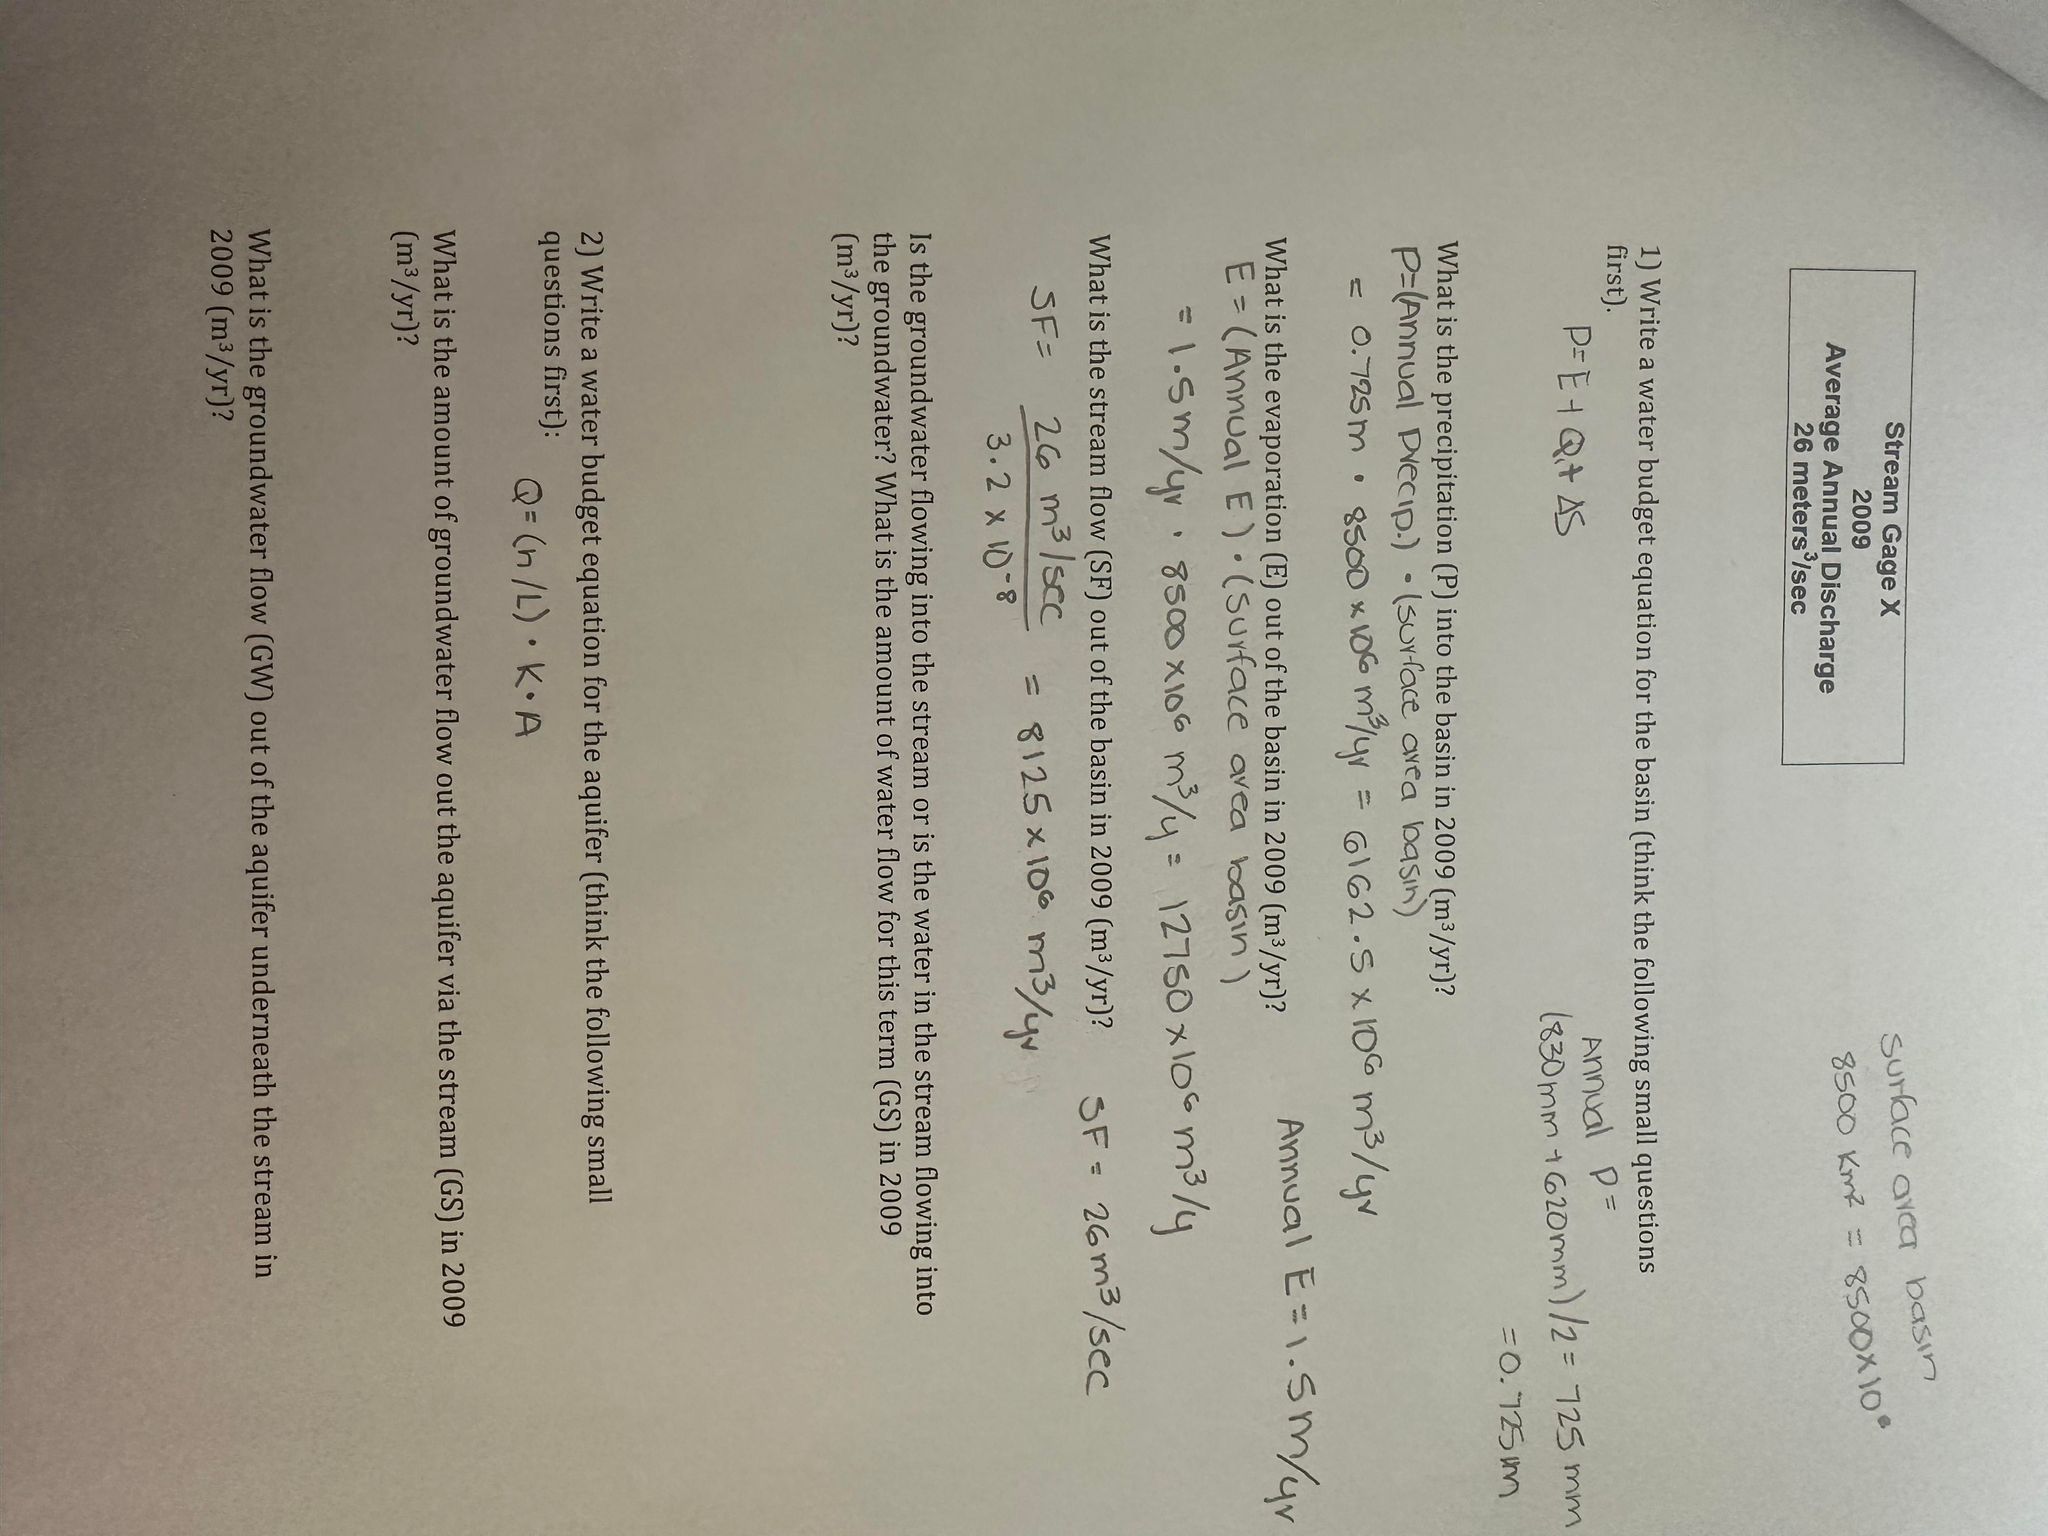 Stream Gage X
2009
Average Annual Discharge
26 meters³/sec
Surface area basin
8500 Km² = 8500x10⁶
1) Write a water budget equation for the basin (think the following small questions
first).
P=E+Q+ΔS
Annual P=
(830mm+620mm)/2= 725 mm
=0.725m
What is the precipitation (P) into the basin in 2009 (m³/yr)?
P=(Annual Precip.)·(surface area basin)
= 0.725m · 8500x10⁶ m³/yr = 6162.5x10⁶ m³/yr
What is the evaporation (E) out of the basin in 2009 (m³/yr)?
Annual E=1.5m/yr
E=(Annual E)·(surface area basin)
= 1.5m/yr · 8500x10⁶ m³/y= 12750x10⁶ m³/y
What is the stream flow (SF) out of the basin in 2009 (m³/yr)?
SF= 26m³/sec
SF= 26 m³/sec = 8125x10⁶ m³/yr
3.2x10⁻⁸
Is the groundwater flowing into the stream or is the water in the stream flowing into
the groundwater? What is the amount of water flow for this term (GS) in 2009
(m³/yr)?
2) Write a water budget equation for the aquifer (think the following small
questions first):
Q=(h/L)·K·A
What is the amount of groundwater flow out the aquifer via the stream (GS) in 2009
(m³/yr)?
What is the groundwater flow (GW) out of the aquifer underneath the stream in
2009 (m³/yr)?